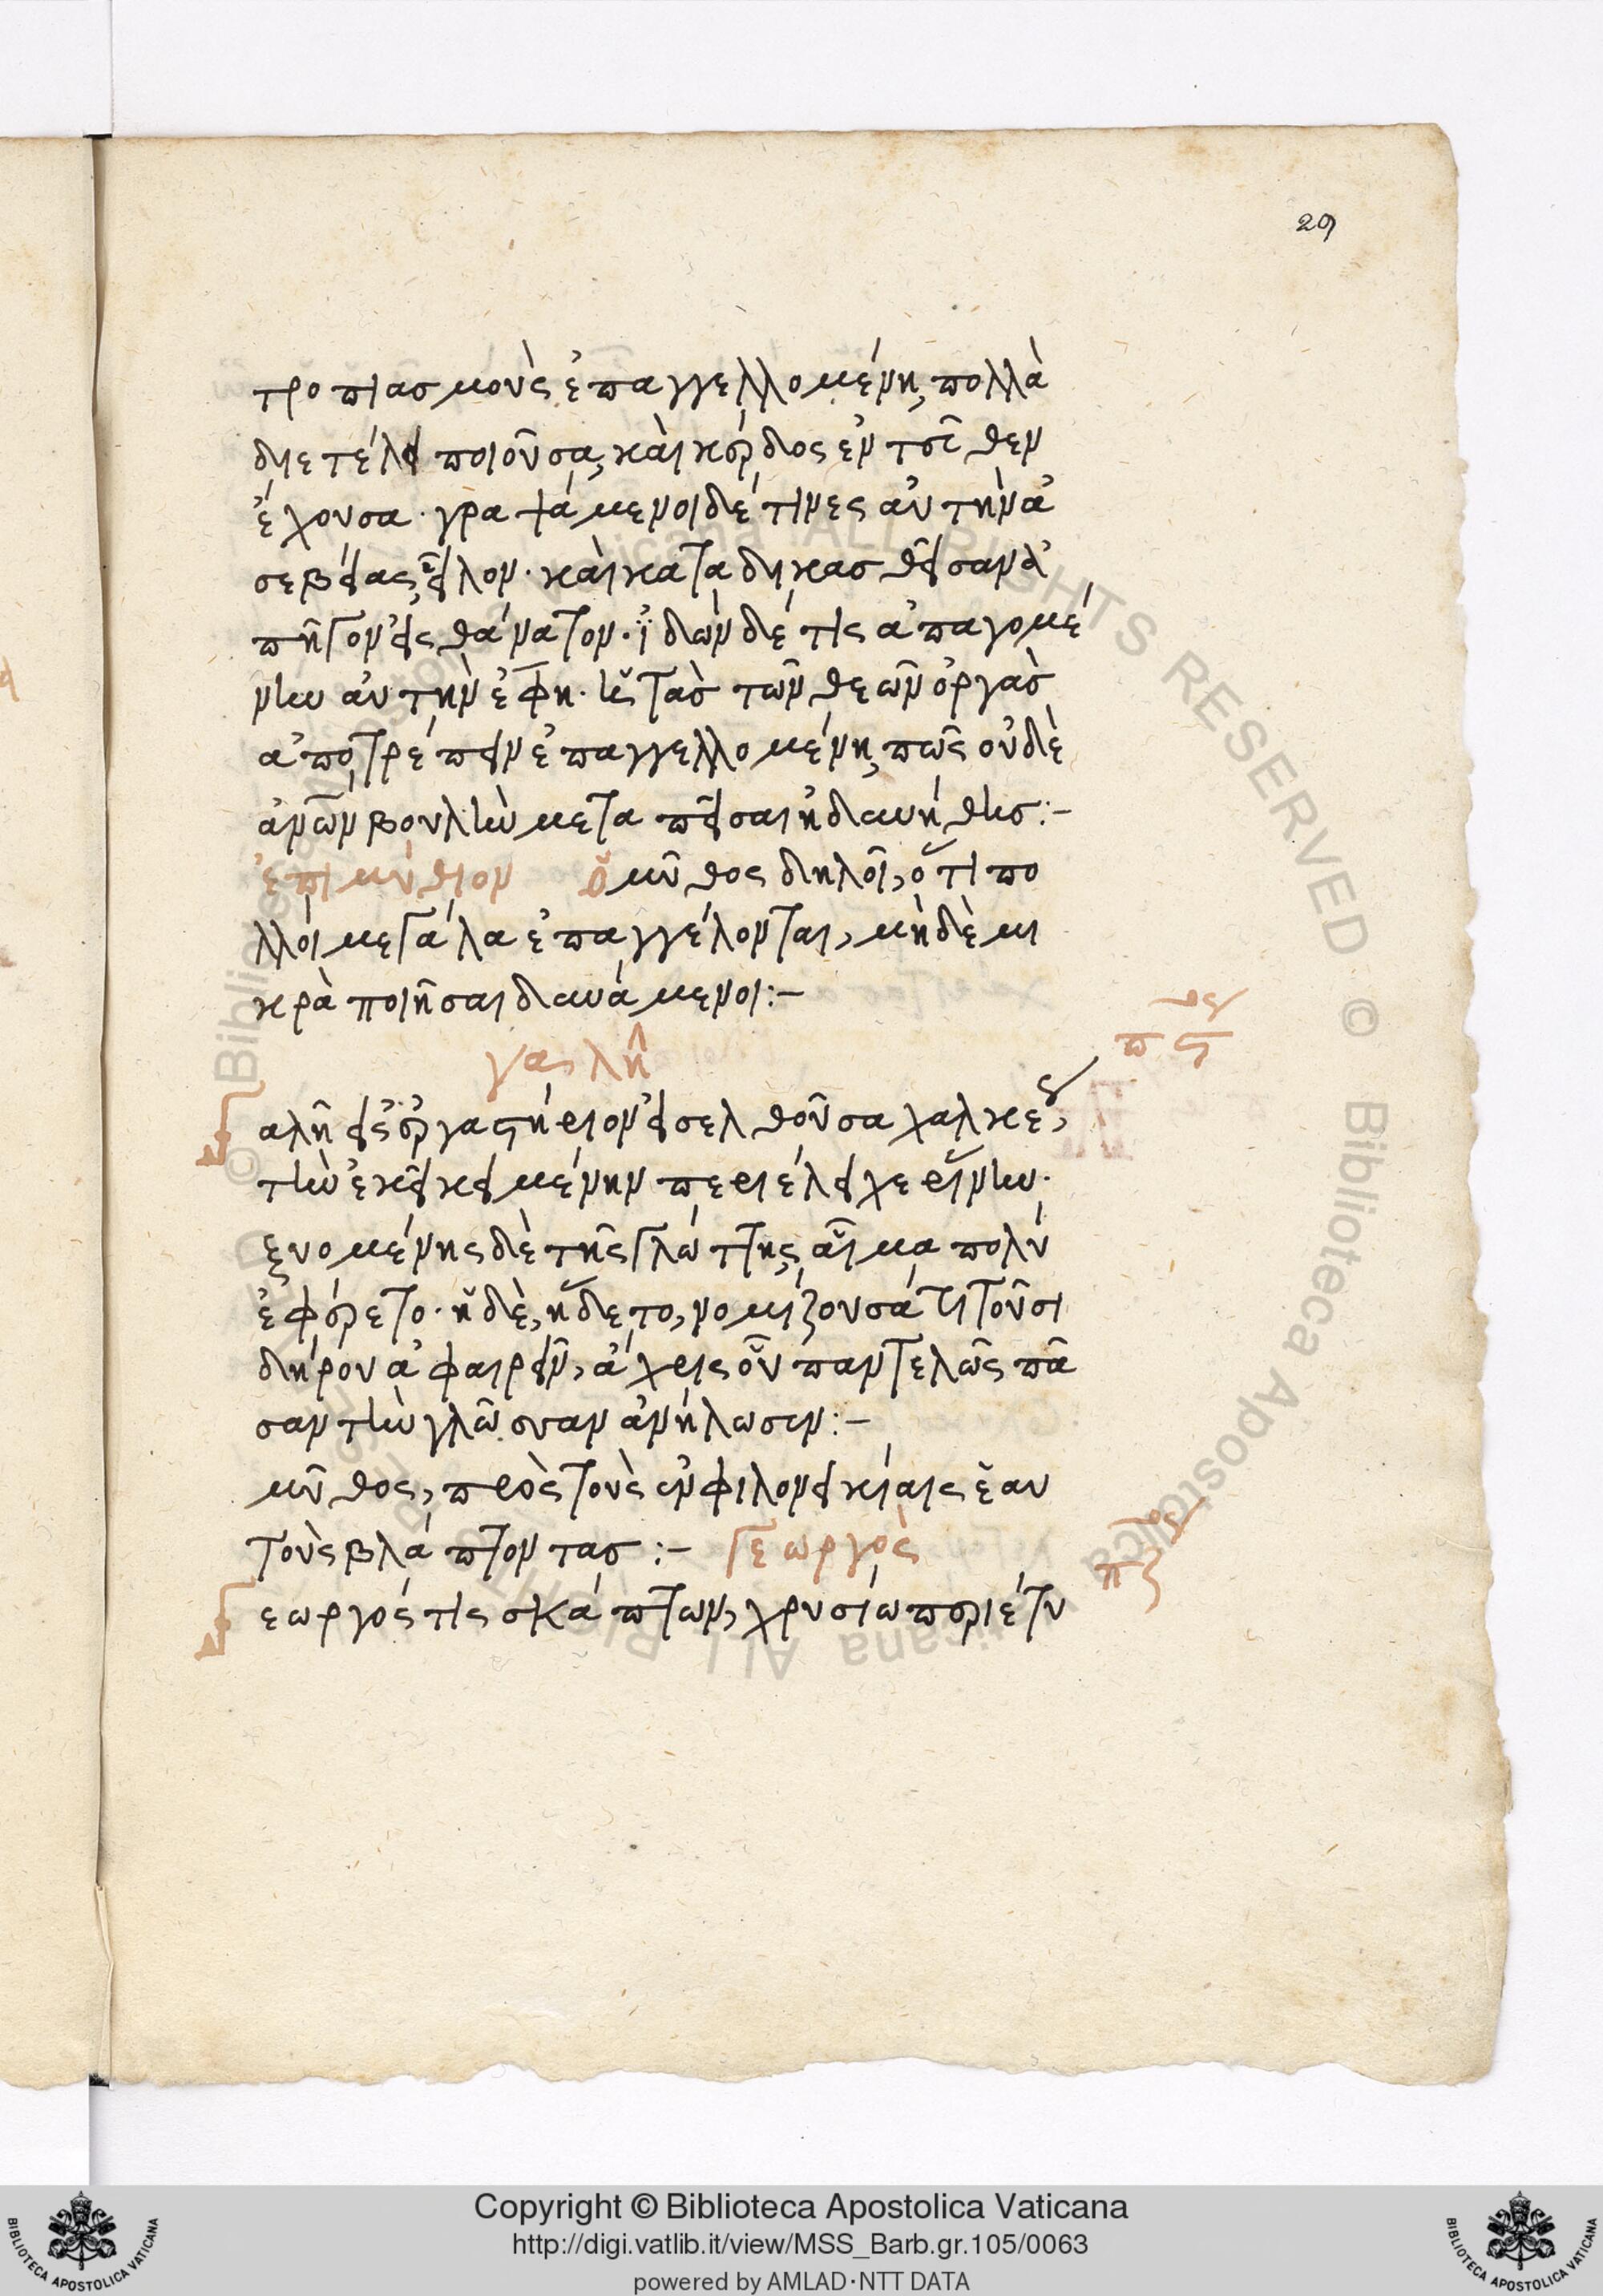 29
τροπιασμοὺς ἐπαγγελλομένη, πολλὰ
διετέλει ποιοῦσα, καὶ κέρδος ἐντεῦθεν
ἔχουσα· γραψάμενοι δέ τινες αὐτὴν ἀ
σεβείας, εἷλον· καὶ καταδικασθεῖσαν ἀ
πῆγον εἰς θάνατον· ἰδὼν δέ τις ἀπαγομέ
νην αὐτὴν ἔφη· ἡ τὰς τῶν θεῶν ὀργὰς
ἀποτρέπειν ἐπαγγελλομένη, πῶς οὐδὲ
ἀνῶν βουλὴν μεταπεῖσαι ἠδυνήθης:-
ἐπιμύθιον ὁ μῦθος δηλοῖ, ὅτι πο
λλοὶ μεγάλα ἐπαγγέλονται, μηδὲ μι
κρὰ ποιῆσαι δυνάμενοι:-
γαλῆ
πϛ
αλῆ εἰς ἐργαστήριον εἰσελθοῦσα χαλκέως,
τὴν ἐκεῖ κειμένην περιέλειχε ῥίνην·
ξυομένης δὲ τῆς γλώττης, αἷμα πολὺ
ἐφέρετο· ἡ δὲ, ἥδετο, νομίζουσά τι τοῦ σι
δήρου ἀφαιρεῖν, ἄχρις οὗ παντελῶς πᾶ
σαν τὴν γλῶσσαν ἀνήλωσεν:-
μῦθος, πρὸς τοὺς ἐν φιλονεικίαις ἑαυ
τοὺς βλάπτοντας :- Γεωργὸς
πζ
εωργός τις σκάπτων, χρυσίω περιέτυ
Copyright © Biblioteca Apostolica Vaticana
http://digi.vatlib.it/view/MSS_Barb.gr.105/0063
powered by AMLAD·NTT DATA
BIBLIOTECA APOSTOLICA VATICANA
BIBLIOTECA APOSTOLICA VATICANA